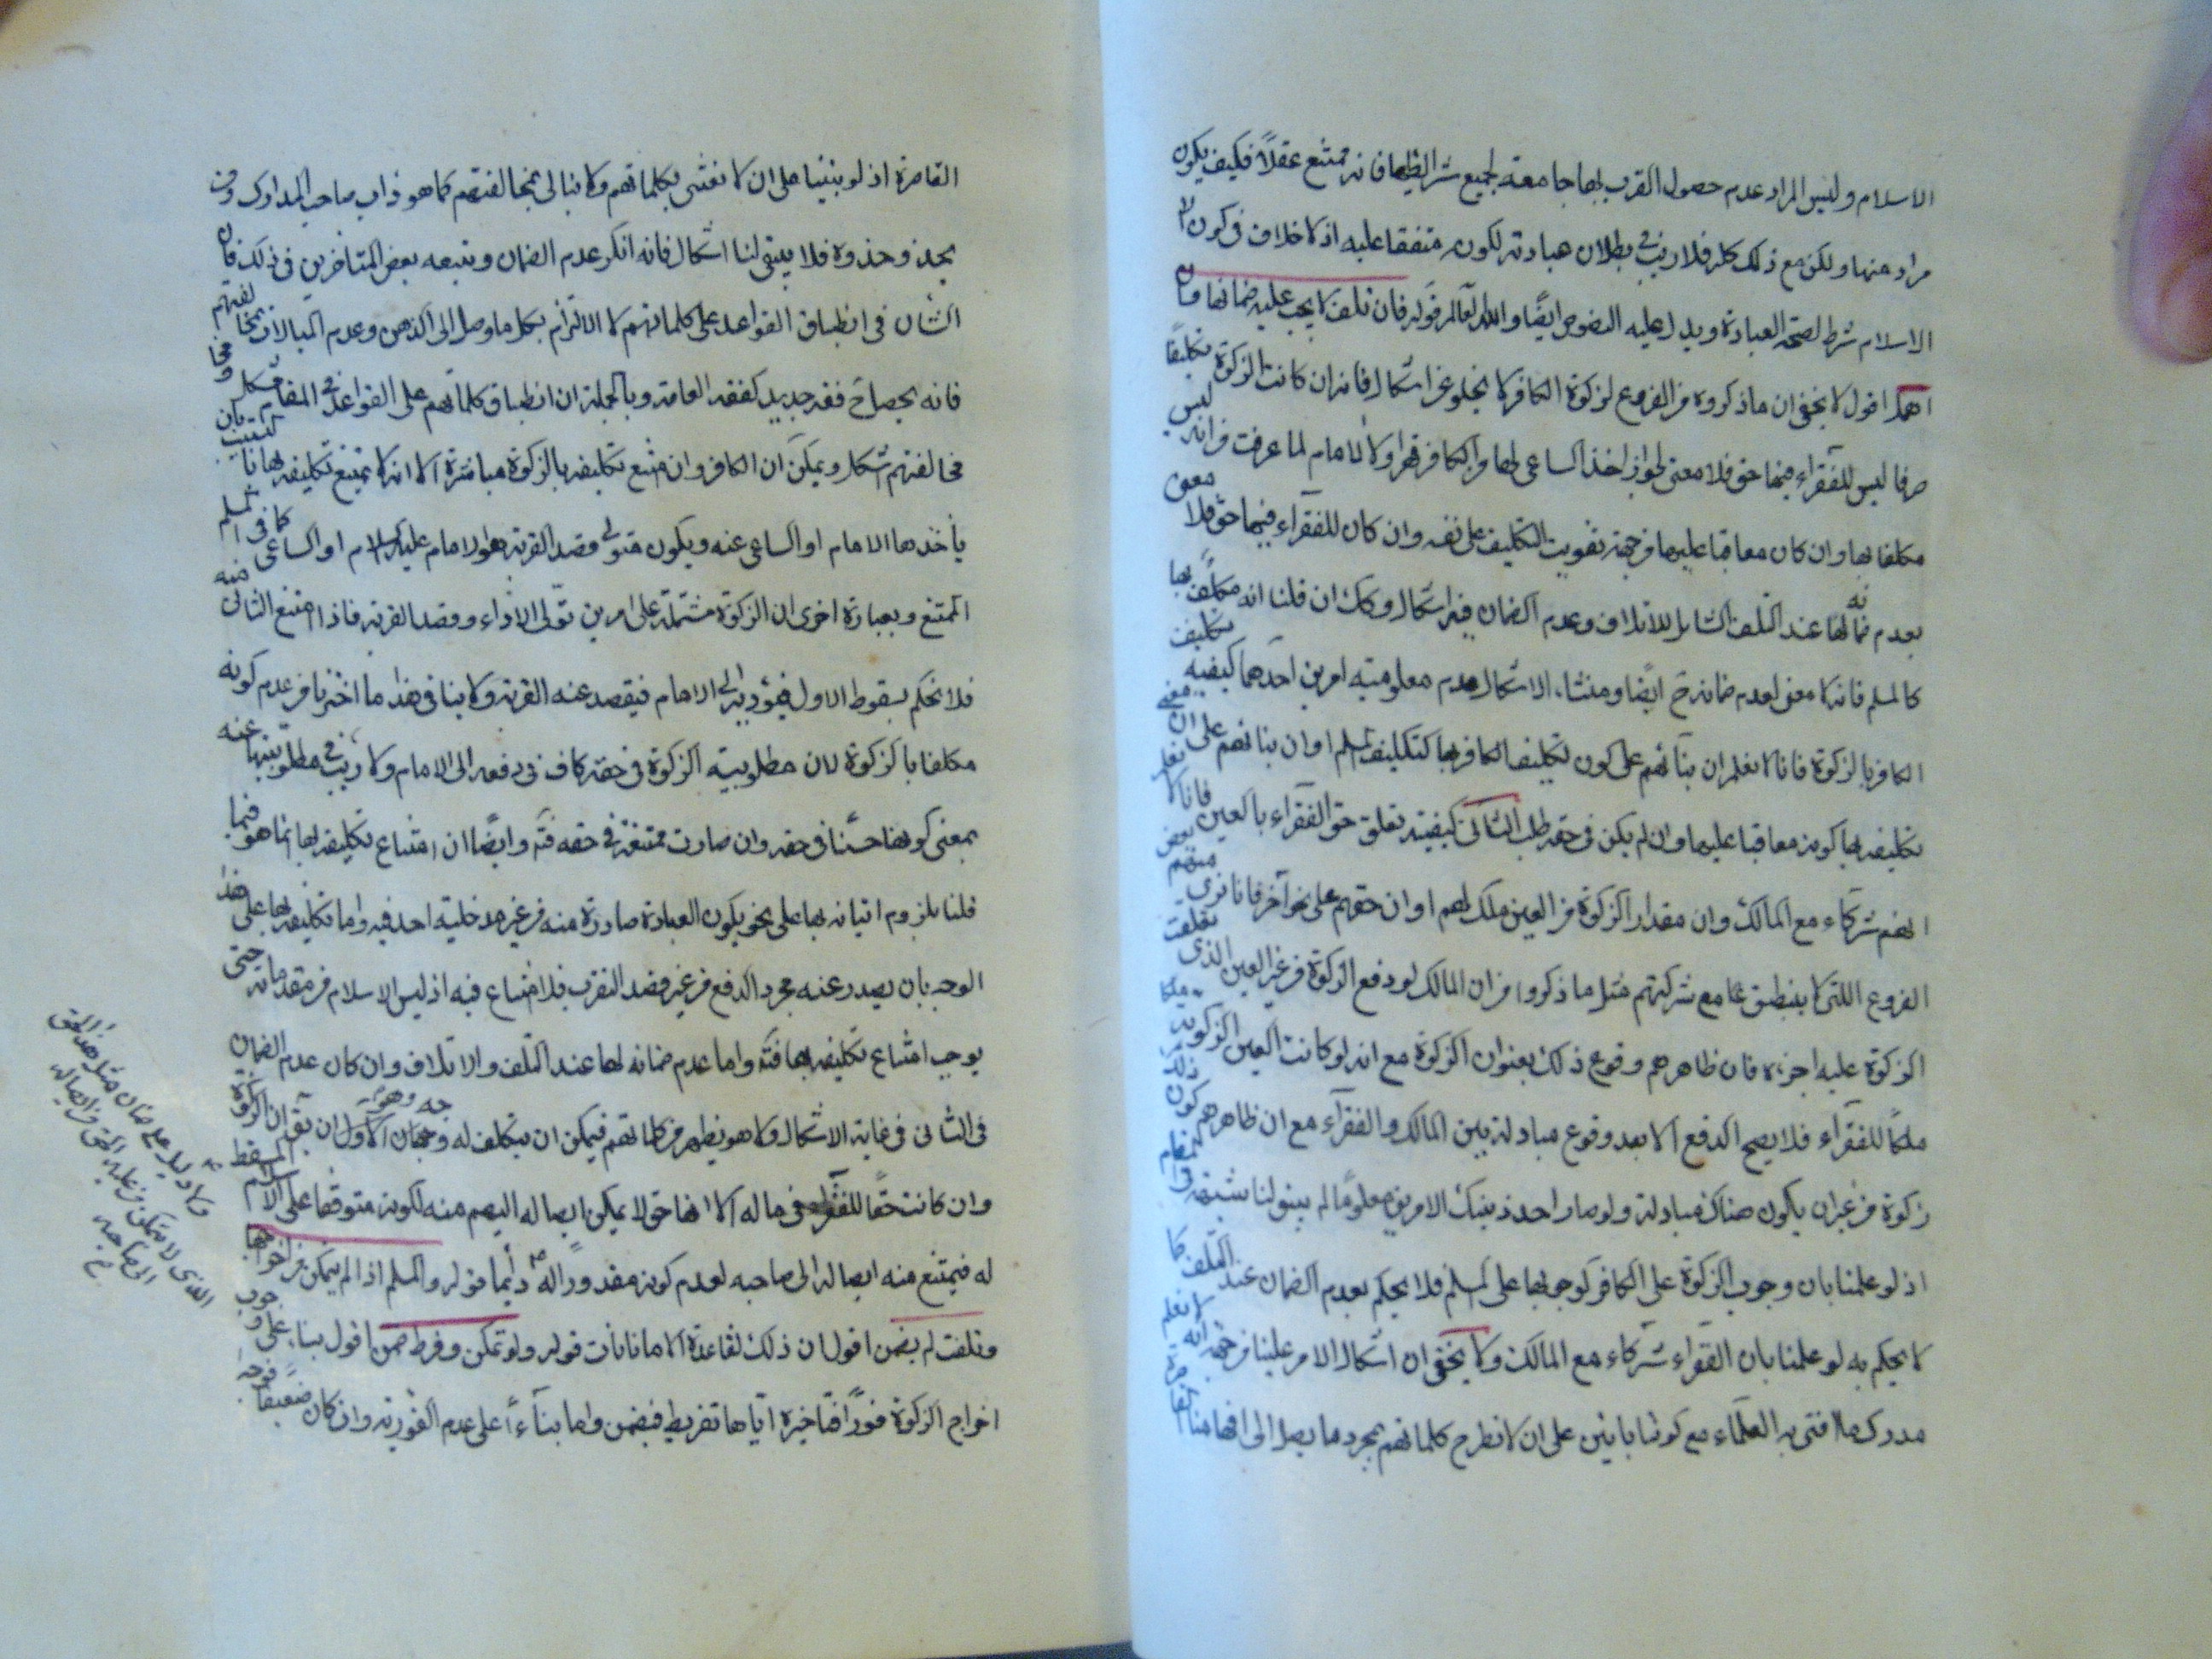 الاسلام وليس المراد عدم حصول القرب بها جامعة لجميع شرايطها فانه ممتنع عقلاً فكيف يكون
مراد منها ولكن مع ذلك كله فلا ريب في بطلان عبادته لكونه متفقا عليه اذ لا خلاف في كون
الاسلام شرط لصحة العبادة ويدل عليه النصوص ايضًا والله العالم قوله فان تلف لا يجب عليه ضمانها وان
اهمل اقول لا يخفى ان ما ذكروه من الفروع لزكوة الكافر لا يخلو عن اشكال فانه ان كانت الزكوة تكليفًا
صرفا ليس للفقراء فيها حق فلا معنى لجواز اخذ الساعي لها من الكافر قهرا ولا الامام لما عرفت من انه ليس
مكلفا بها وان كان معاقبا عليها من جهة تفويت التكليف على نفسه وان كان للفقراء فيها حق فلا معنى
بعدم ضمانه لها عند التلف الشامل للاتلاف وعدم الضمان فيه اشكال وكك ان قلنا انه مكلف بها
كالمسلم فانه لا معنى لعدم ضمانه ح ايضا ومنشاء الاشكال عدم معلومية امرين احدهما كيفية تكليف
الكافر بالزكوة فانا لا نعلم ان بنائهم على كون تكليف الكافر بها كتكليف المسلم او ان بنائهم على ان معنى
تكليفه بها كونه معاقبا عليها وان لم يكن في حقه طلب الثاني كيفية تعلق حق الفقراء بالعين فانا لا نعلم
انهم شركاء مع المالك وان مقدار الزكوة من العين ملك لهم او ان حقهم على نحو آخر فانا نرى منهم بعض
الفروع اللتي لا ينطبق الا مع شركتهم مثل ما ذكروا من ان المالك لو دفع الزكوة من غير العين الذي تعلقت
الزكوة عليه اجزئه فان ظاهرهم وقوع ذلك بعنوان الزكوة مع انه لو كانت العين الزكوية ملكا
ملكًا للفقراء فلا يصح الدفع الا بعد وقوع مبادلة بين المالك والفقرآء مع ان ظاهرهم كون ذلك
زكوة من غير ان يكون هناك مبادلة ولو صار احد ذينك الامرين معلومًا لم يبق لنا شبهة في المقام
اذ لو علمنا بان وجوب الزكوة على الكافر كوجوبها على المسلم فلا يحكم بعدم الضمان عند التلف كما
لا يحكم به لو علمنا بان الفقراء شركاء مع المالك ولا يخفى ان اشكال الامر علينا من جهة انه لا نعلم
مدرك ما افتى به العلماء مع كوننا بانين على ان لا نطرح كلماتهم بمجرد ما يصل الى افهامنا
القاصرة اذ لو بنينا على ان لا نعتنى بكلماتهم ولا نبالى بمخالفتهم كما هو داب صاحب المدارك ومن
يحذو حذوه فلا يبقى لنا اشكال فانه انكر عدم الضمان وتبعه بعض المتأخرين في ذلك فان
الشان في انطباق القواعد على كلماتهم لا الالتزام بكل ما وصل الى الذهن وعدم المبالات بمخالفتهم
فانه يحصل ح فقه جديد كفقه العامة وبالجملة ان انطباق كلماتهم على القواعد في المقام مشكل و
مخالفتهم اشكل ويمكن ان الكافر وان امتنع تكليفه بالزكوة مباشرة الا انه لا يمتنع تكليفه بها بان
يأخذها الامام او الساعي عنه ويكون متولي قصد القربة هو الامام عليه السلام او الساعي كما في المسلم
الممتنع وبعبارة اخرى ان الزكوة مشتملة على امرين تولى الاداء وقصد القربة فاذا امتنع الثاني منه
فلا نحكم بسقوط الاول فيؤديه الى الامام فيقصد عنه القربة ولا ينافي هذا ما اخترنا من عدم كونه
مكلفا بالزكوة لان مطلوبية الزكوة في حقه كاف في دفعه الى الامام ولا ريب في مطلوبيتها عنه
بمعنى كونها حسنًا في حقه وان صارت ممتنعة في حقه فتم وايضًا ان امتناع تكليفه بها انما هو فيما
قلنا بلزوم اتيانه بها على نحو يكون العبادة صادرة منه من غير مدخلية احد فيه واما تكليفه بها على هذا
الوجه بان يصدر عنه مجرد الدفع من غير قصد التقرب فلا امتناع فيه اذ ليس الاسلام من مقدماته حتى
يوجب امتناع تكليفه بها فتم واما عدم ضمانه لها عند التلف والاتلاف وان كان عدم الضمان
في الثاني في غاية الاشكال ولا هو يظهر من كلماتهم فيمكن ان يتكلف له وجهان الاول ان يق ان الزكوة
وان كانت حقًا للفقراء في ماله الا انها حق لا يمكن ايصاله اليهم منه لكونه متوقفا على الاسلام المسقط
له فيمتنع منه ايصاله الى صاحبه لعدم كونه مقدورًا له دائما قوله والمسلم اذا لم يتمكن من اخراجها
وتلفت لم يضمن اقول ان ذلك لقاعدة الامانات قوله ولو تمكن وفرط ضمن اقول بناء على وجوب
اخراج الزكوة فورًا فتاخيره اياها تفريط فيضمن واما بنآءً على عدم الفورية وان كان ضعيفا
ولا دليل على ضمان مثل هذا الحق
الذي لا يتمكن من عليه الحق من ايصاله
الى صاحبه